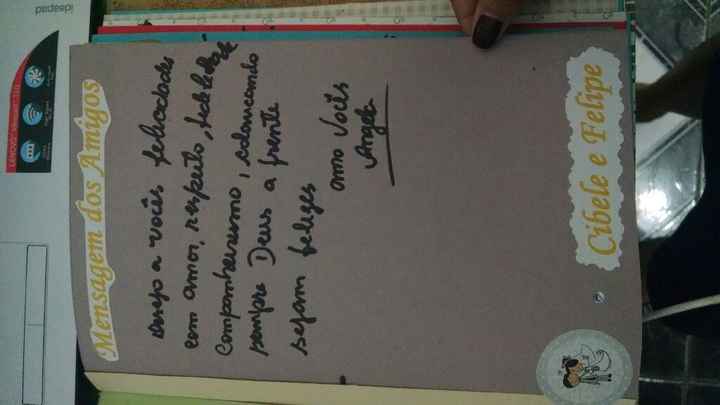 Mensagem dos Amigos
desejo a vocês felicidades
com amor, respeito,
Companheirismo, colowcando
sempre Deus a frente
sejam felizes
amo Vocês
Angela
Cibele e Felipe
ideapad